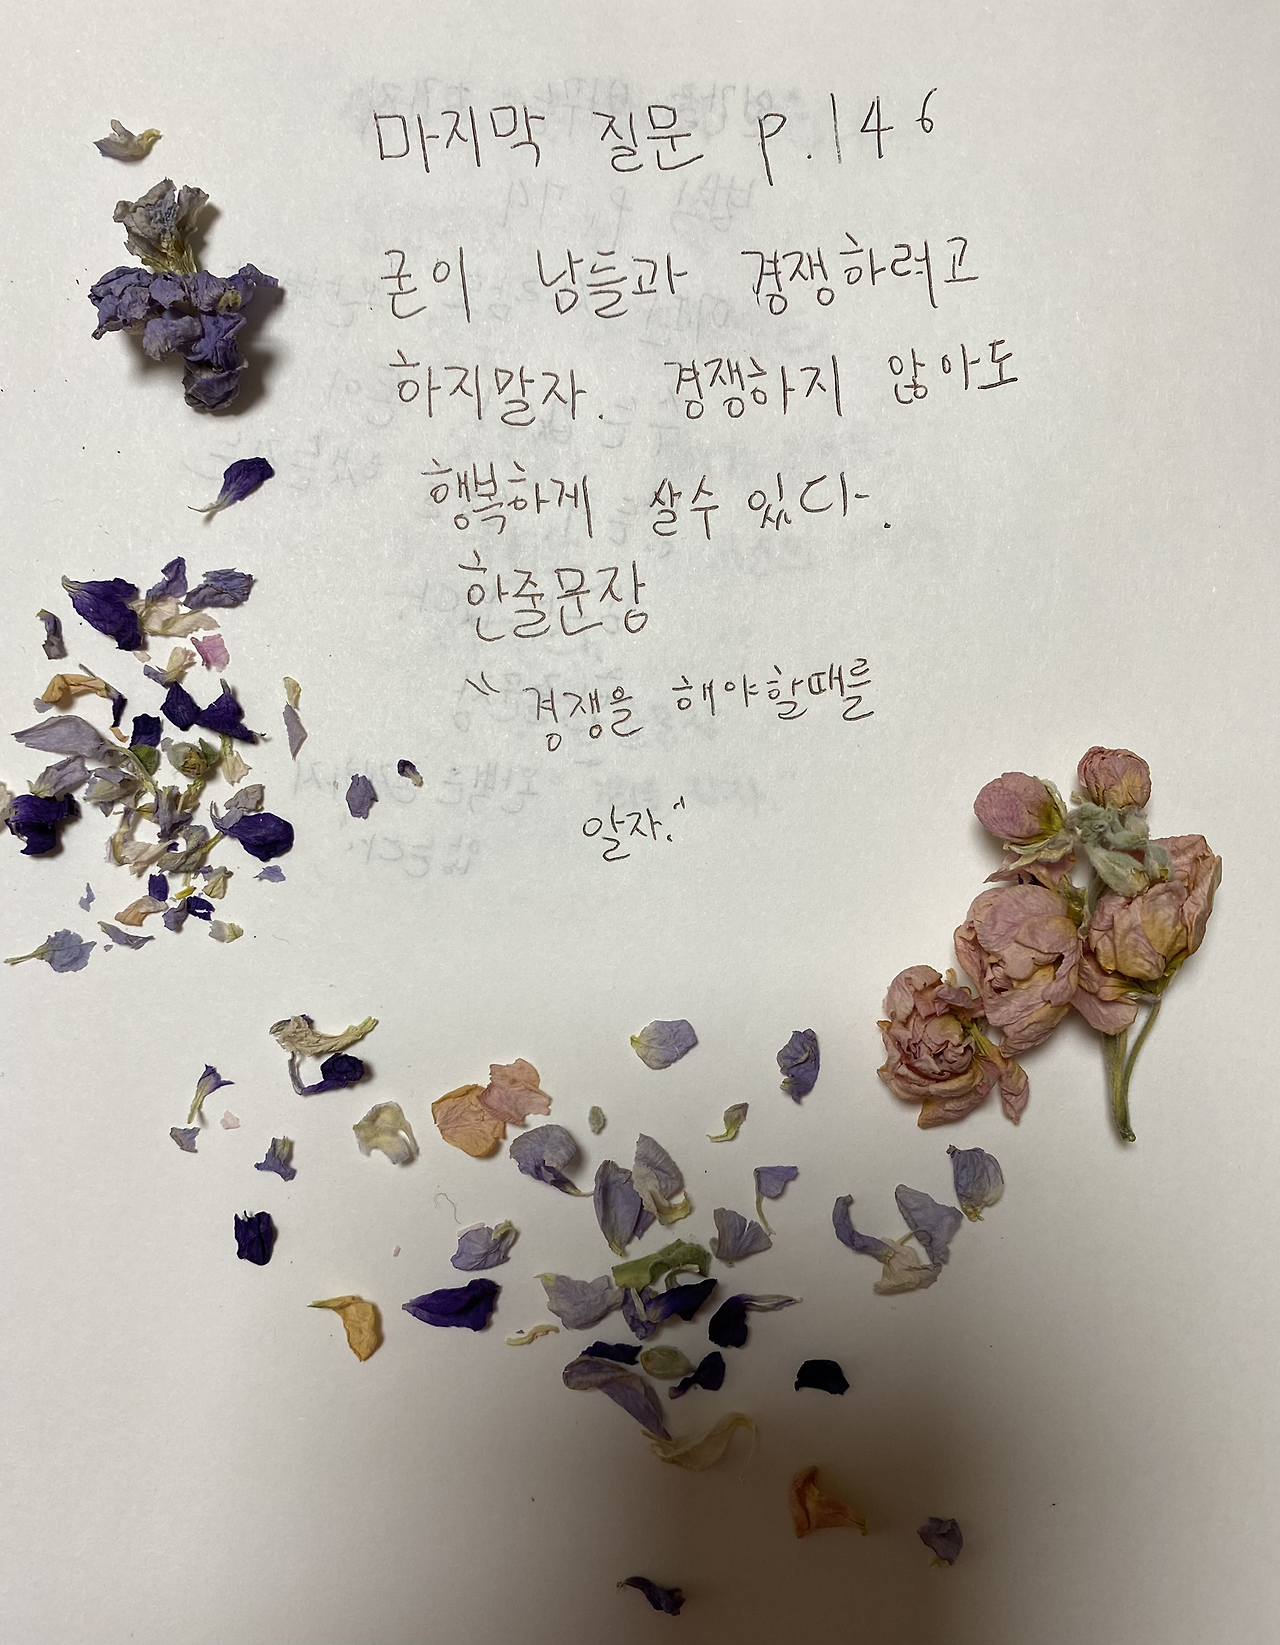 마지막 질문 p.146
굳이 남들과 경쟁하려고
하지말자. 경쟁하지 않아도
행복하게 살수 있다.
한줄문장
"경쟁을 해야할때를
알자."